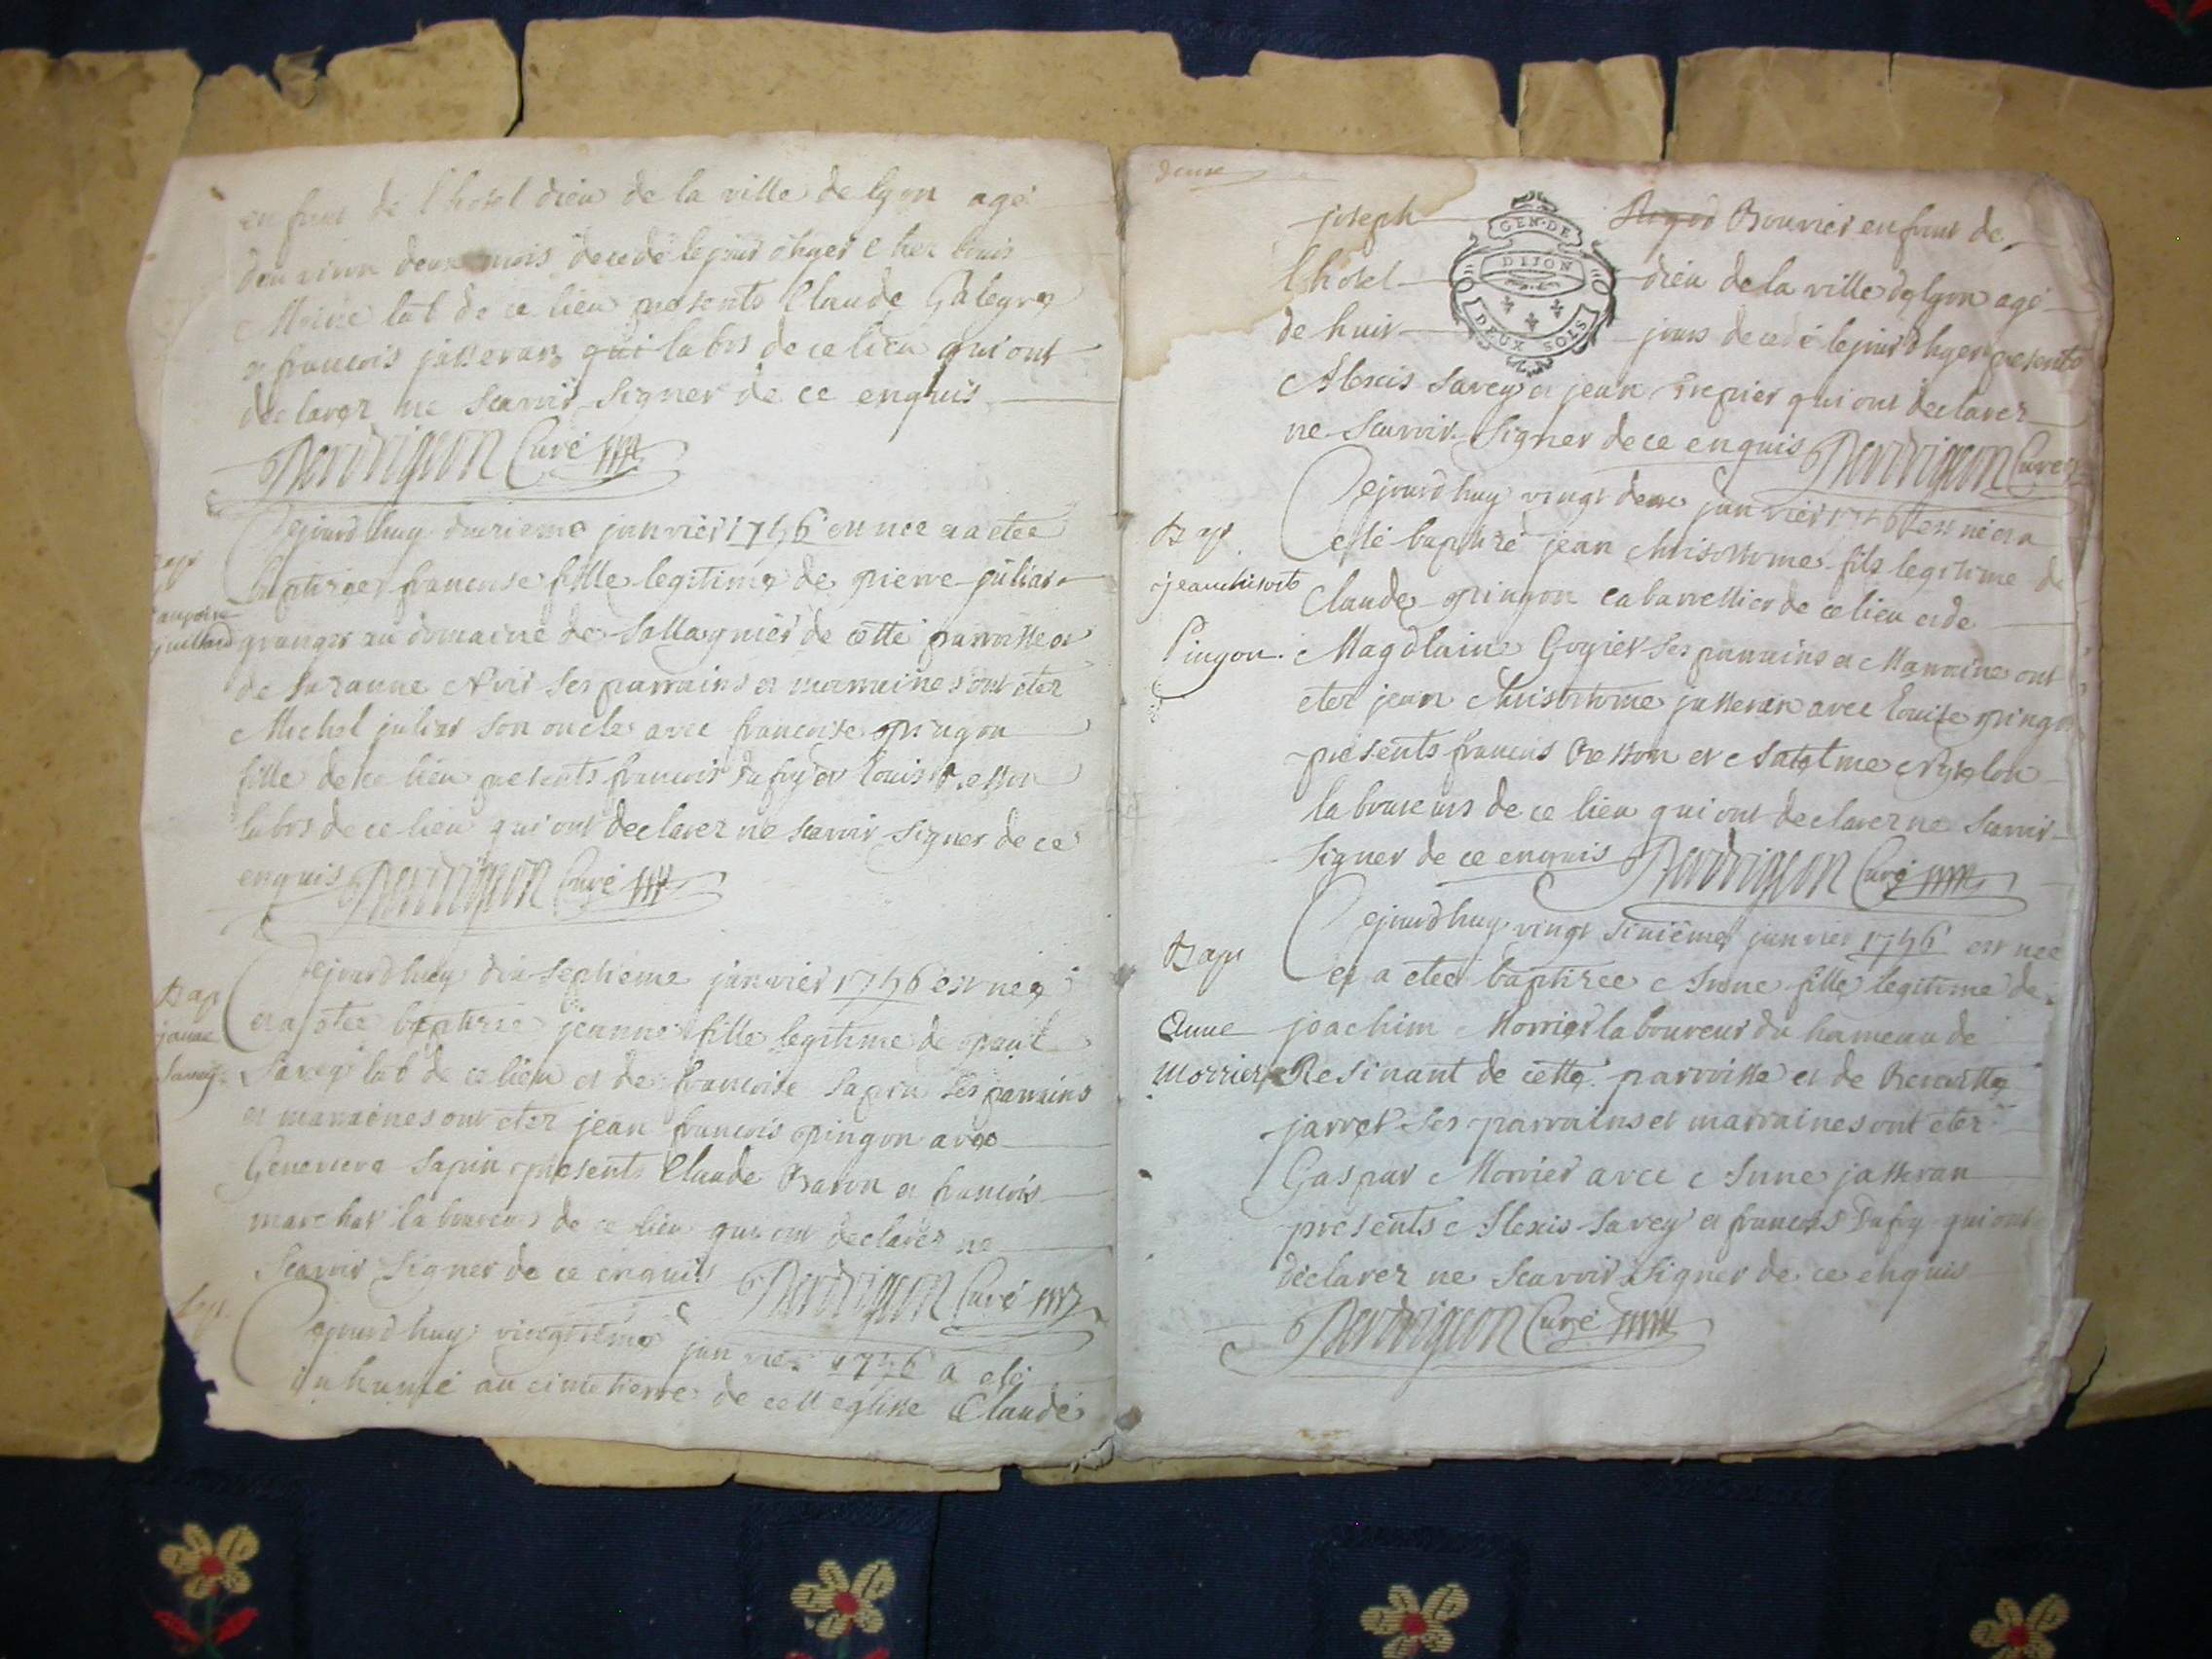 enfant de l hotel dieu de la ville de lyon agé
d'environ deux mois decedé le jour d'hyer chez louis
Moine lab de ce lieu presents Claude Galegre
et francois jasseran qui labrs de ce lieu qui ont
declarez ne scavoir signer de ce enquis
Perdrigeon Curé
Cejourd huy douzieme janvier 1746 est née et a etée
baptizée francoise fille legitime de pierre juliar
granger au domaine de Sallagnier de cette parroisse et
de Suzanne Noir ses parrains et marraines ont etez
Michel juliar son oncle avec francoise pingon
fille de ce lieu presents francois Dufoy et louis Besson
labrs de ce lieu qui ont declarez ne scavoir signer de ce
enquis Perdrigeon Curé
Bap
juillard
Cejourd huy dix septieme janvier 1746 est née
et a etée baptizée jeanne fille legitime de paul
Savey lab de ce lieu et de francoise Sapin ses parrains
et maraines ont etez jean francois pingon avec
Genevieve Sapin presents Claude Baron et francois
marchat laboureurs de ce lieu qui ont declarez ne
Scavoir Signer de ce enquis Perdrigeon Curé
Bap
janne
Savey
Cejourd huy vingtieme janvier 1746 a eté
inhumé au cimetierre de cett eglisse Claude
Sep
deuxe
joseph Bouvier enfant de
l hotel dieu de la ville de lyon agé
de huit jours decedé le jour d hyer presents
Alexis Savey et jean Grepier qui ont declarez
ne Scavoir Signer de ce enquis Perdrigeon Curé
GEN·DE
DIJON
DEUX SOLS
Cejourd huy vingt deux janvier 1746 est né et a
esté baptizé jean chrisostome fils legitime de
Claude pingon cabarettier de ce lieu et de
Magdlaine Goyiet ses parrains et Marraines ont
etez jean chrisostome jasseran avec louise pingon
presents francois Besson et
laboureurs de ce lieu qui ont declarez ne Scavoir
Signer de ce enquis Perdrigeon Curé
Bap
jean chrisost
Pingon.
Cejourd huy vingt sixième janvier 1746 est née
et a etée baptizée Anne fille legitime de
joachim Morrier laboureur du hameau de
Resinant de cette parroisse et de Benoitte
jarret ses parrains et marraines ont etez
Gaspar Morrier avec Anne jasseran
presents Alexis Savey et francois Dufoy qui ont
declarez ne Scavoir Signer de ce enquis
Perdrigeon Curé
Bap
Anne
Morrier